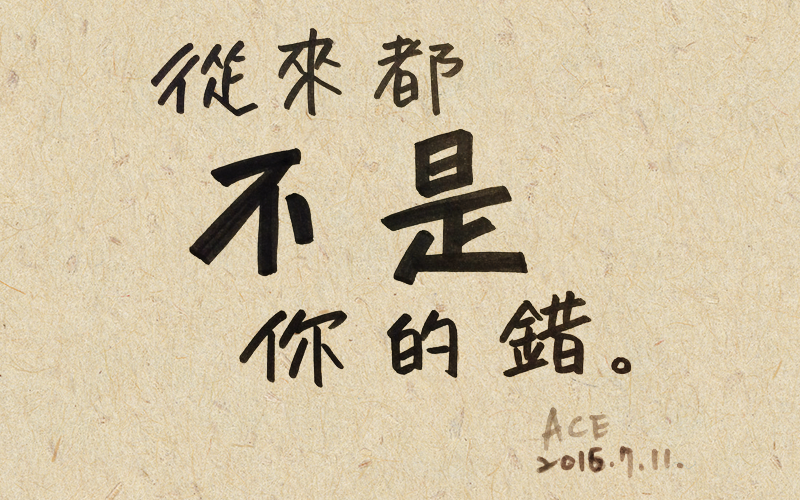 從來都
不是
你的錯。
ACE
2016.7.11.